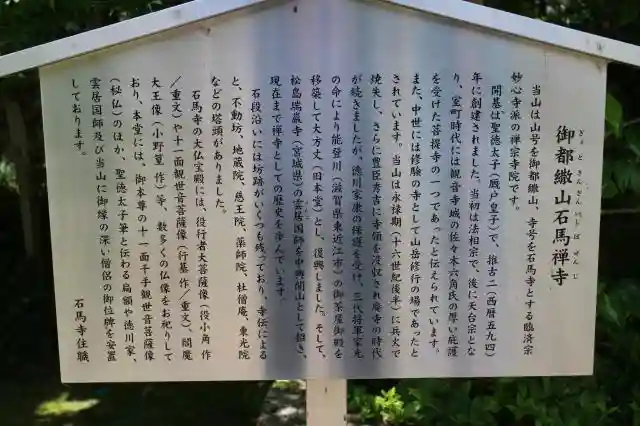 御都繖山石馬禅寺
ぎょとさんざんいしばぜんじ
当山は山号を御都繖山、寺号を石馬寺とする臨済宗
妙心寺派の禅宗寺院です。
開基は聖徳太子(厩戸皇子)で、推古二(西暦五九四)
年に創建されました。当初は法相宗で、後に天台宗とな
り、室町時代には観音寺城の佐々木六角氏の厚い庇護
を受けた菩提寺の一つであったと伝えられています。
また、中世には修験の寺として山岳修行の場であったと
されています。当山は永禄期(十六世紀後半)に兵火で
焼失し、さらに豊臣秀吉に寺領を没収され廃寺の時代
が続きましたが、徳川家康の採護を受け、三代将軍家光
の命により能登川(滋賀県東近江市)の御茶屋御殿を
移築して大方丈(旧本堂)とし、復興しました。そして、
松島瑞巌寺(宮城県)の雲居国師を中興開山として招き、
現在まで禅寺としての歴史を歩んでいます。
石段沿いには坊跡がいくつも残っており、寺伝による
と、不動坊、地蔵院、慈王院、薬師院、杜僧庵、東光院
などの塔頭がありました。
石馬寺の大仏宝殿には、役行者大菩薩像(役小角 作
/重文)や十一面観世音菩薩像(行基 作/重文)、閻魔
大王像(小野篁 作)等、数多くの仏像をお祀りして
おり、本堂には、御本尊の十一面千手観世音菩薩像
(秘仏)のほか、聖徳太子筆と伝わる扁額や徳川家、
雲居国師及び当山に御縁の深い僧侶の御位牌を安置
しております。
石馬寺住職